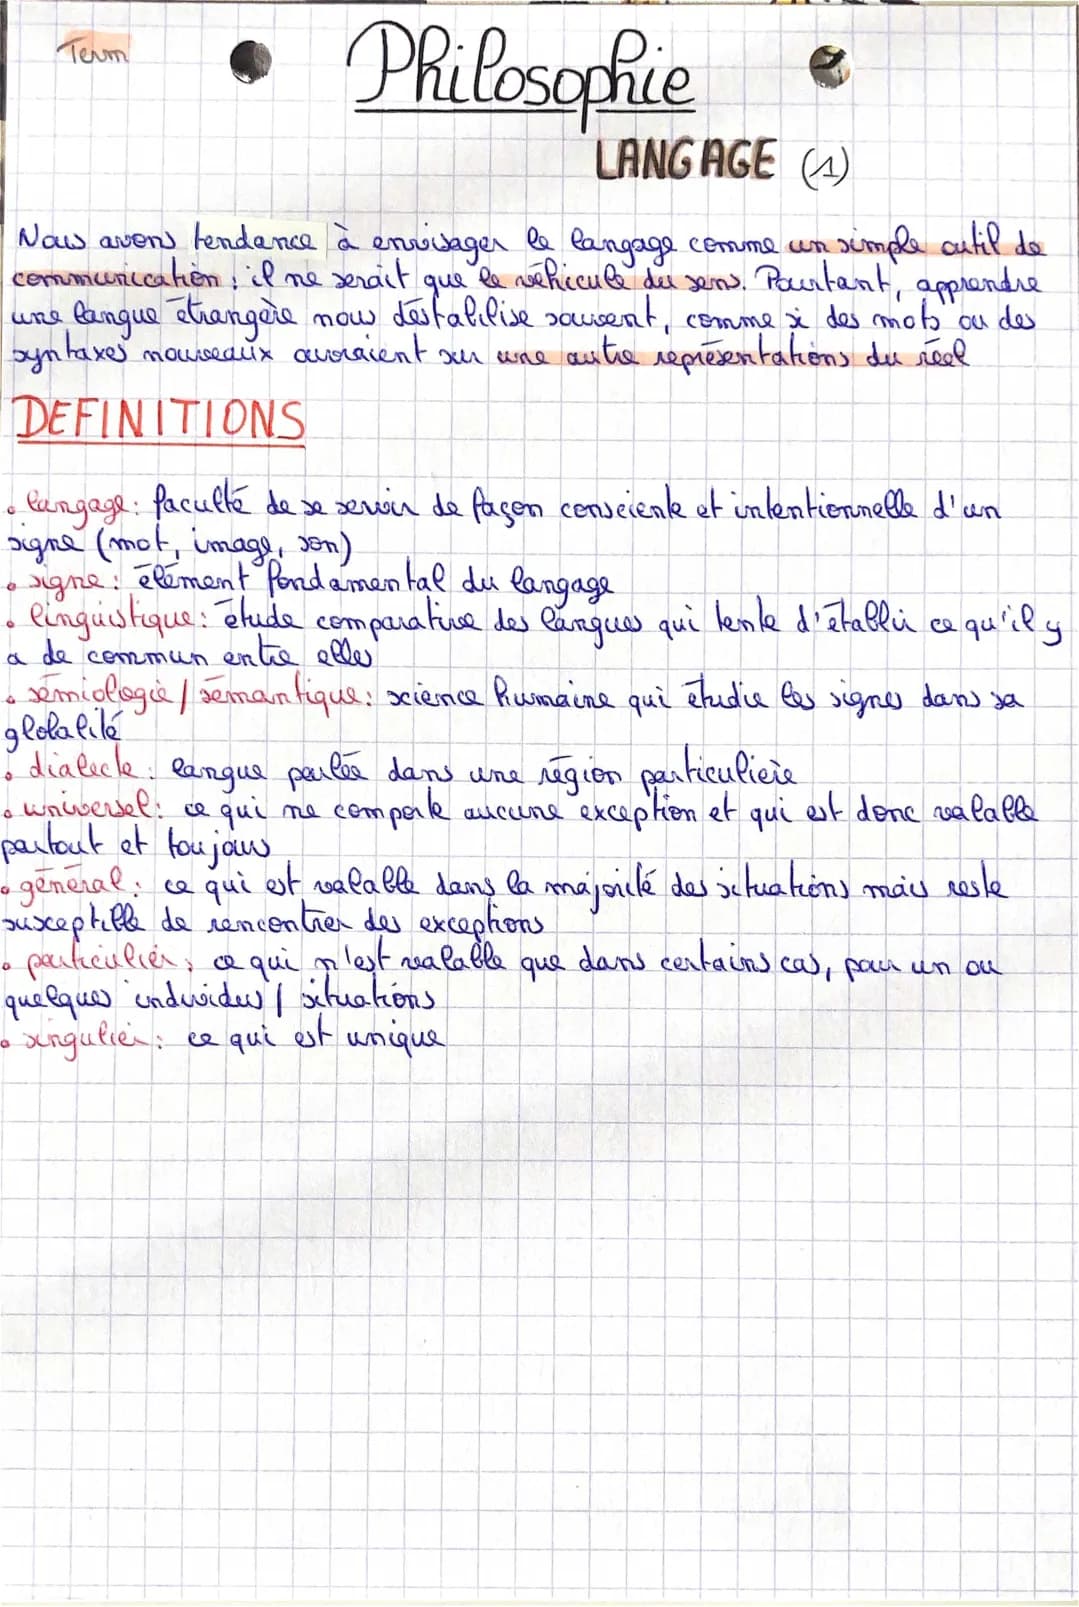 Term
Philosophie
LANGAGE (1)
Nous avons tendance à envisager le langage comme un simple outil de
communication ; il ne serait que le véhicule du sens. Pourtant, apprendre
une langue étrangère nous déstabilise souvent, comme si des mots ou des
syntaxes nouveaux ouvraient sur une autre représentations du réel
DEFINITIONS
• langage : faculté de se servir de façon consciente et intentionnelle d'un
signe (mot, image, son)
• signe : élément fondamental du langage
• linguistique : étude comparative des langues qui tente d'établir ce qu'il y
a de commun entre elles
• sémiologie / sémantique : science humaine qui étudie les signes dans sa
globalité
• dialecte : langue parlée dans une région particulière
• universel : ce qui ne comporte aucune exception et qui est donc valable
partout et toujours
• général : ce qui est valable dans la majorité des situations mais reste
susceptible de rencontrer des exceptions
• particulier : ce qui n'est valable que dans certains cas, pour un ou
quelques individus / situations
• singulier : ce qui est unique